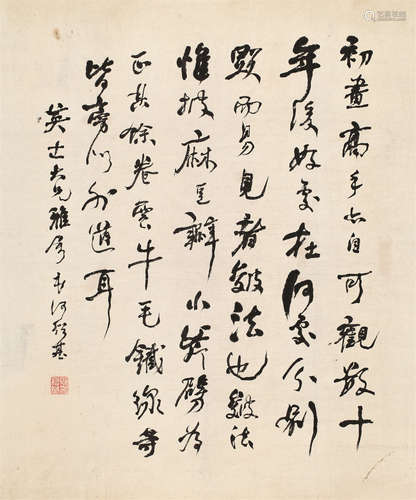 初畫高手亦自可觀數十
年後好處在何處分別
顯而易見者皴法也皴法
惟披麻豆瓣小斧劈為
正其餘卷雲牛毛鐵線等
皆旁門外道耳
英士大兄雅屬 弟何紹基